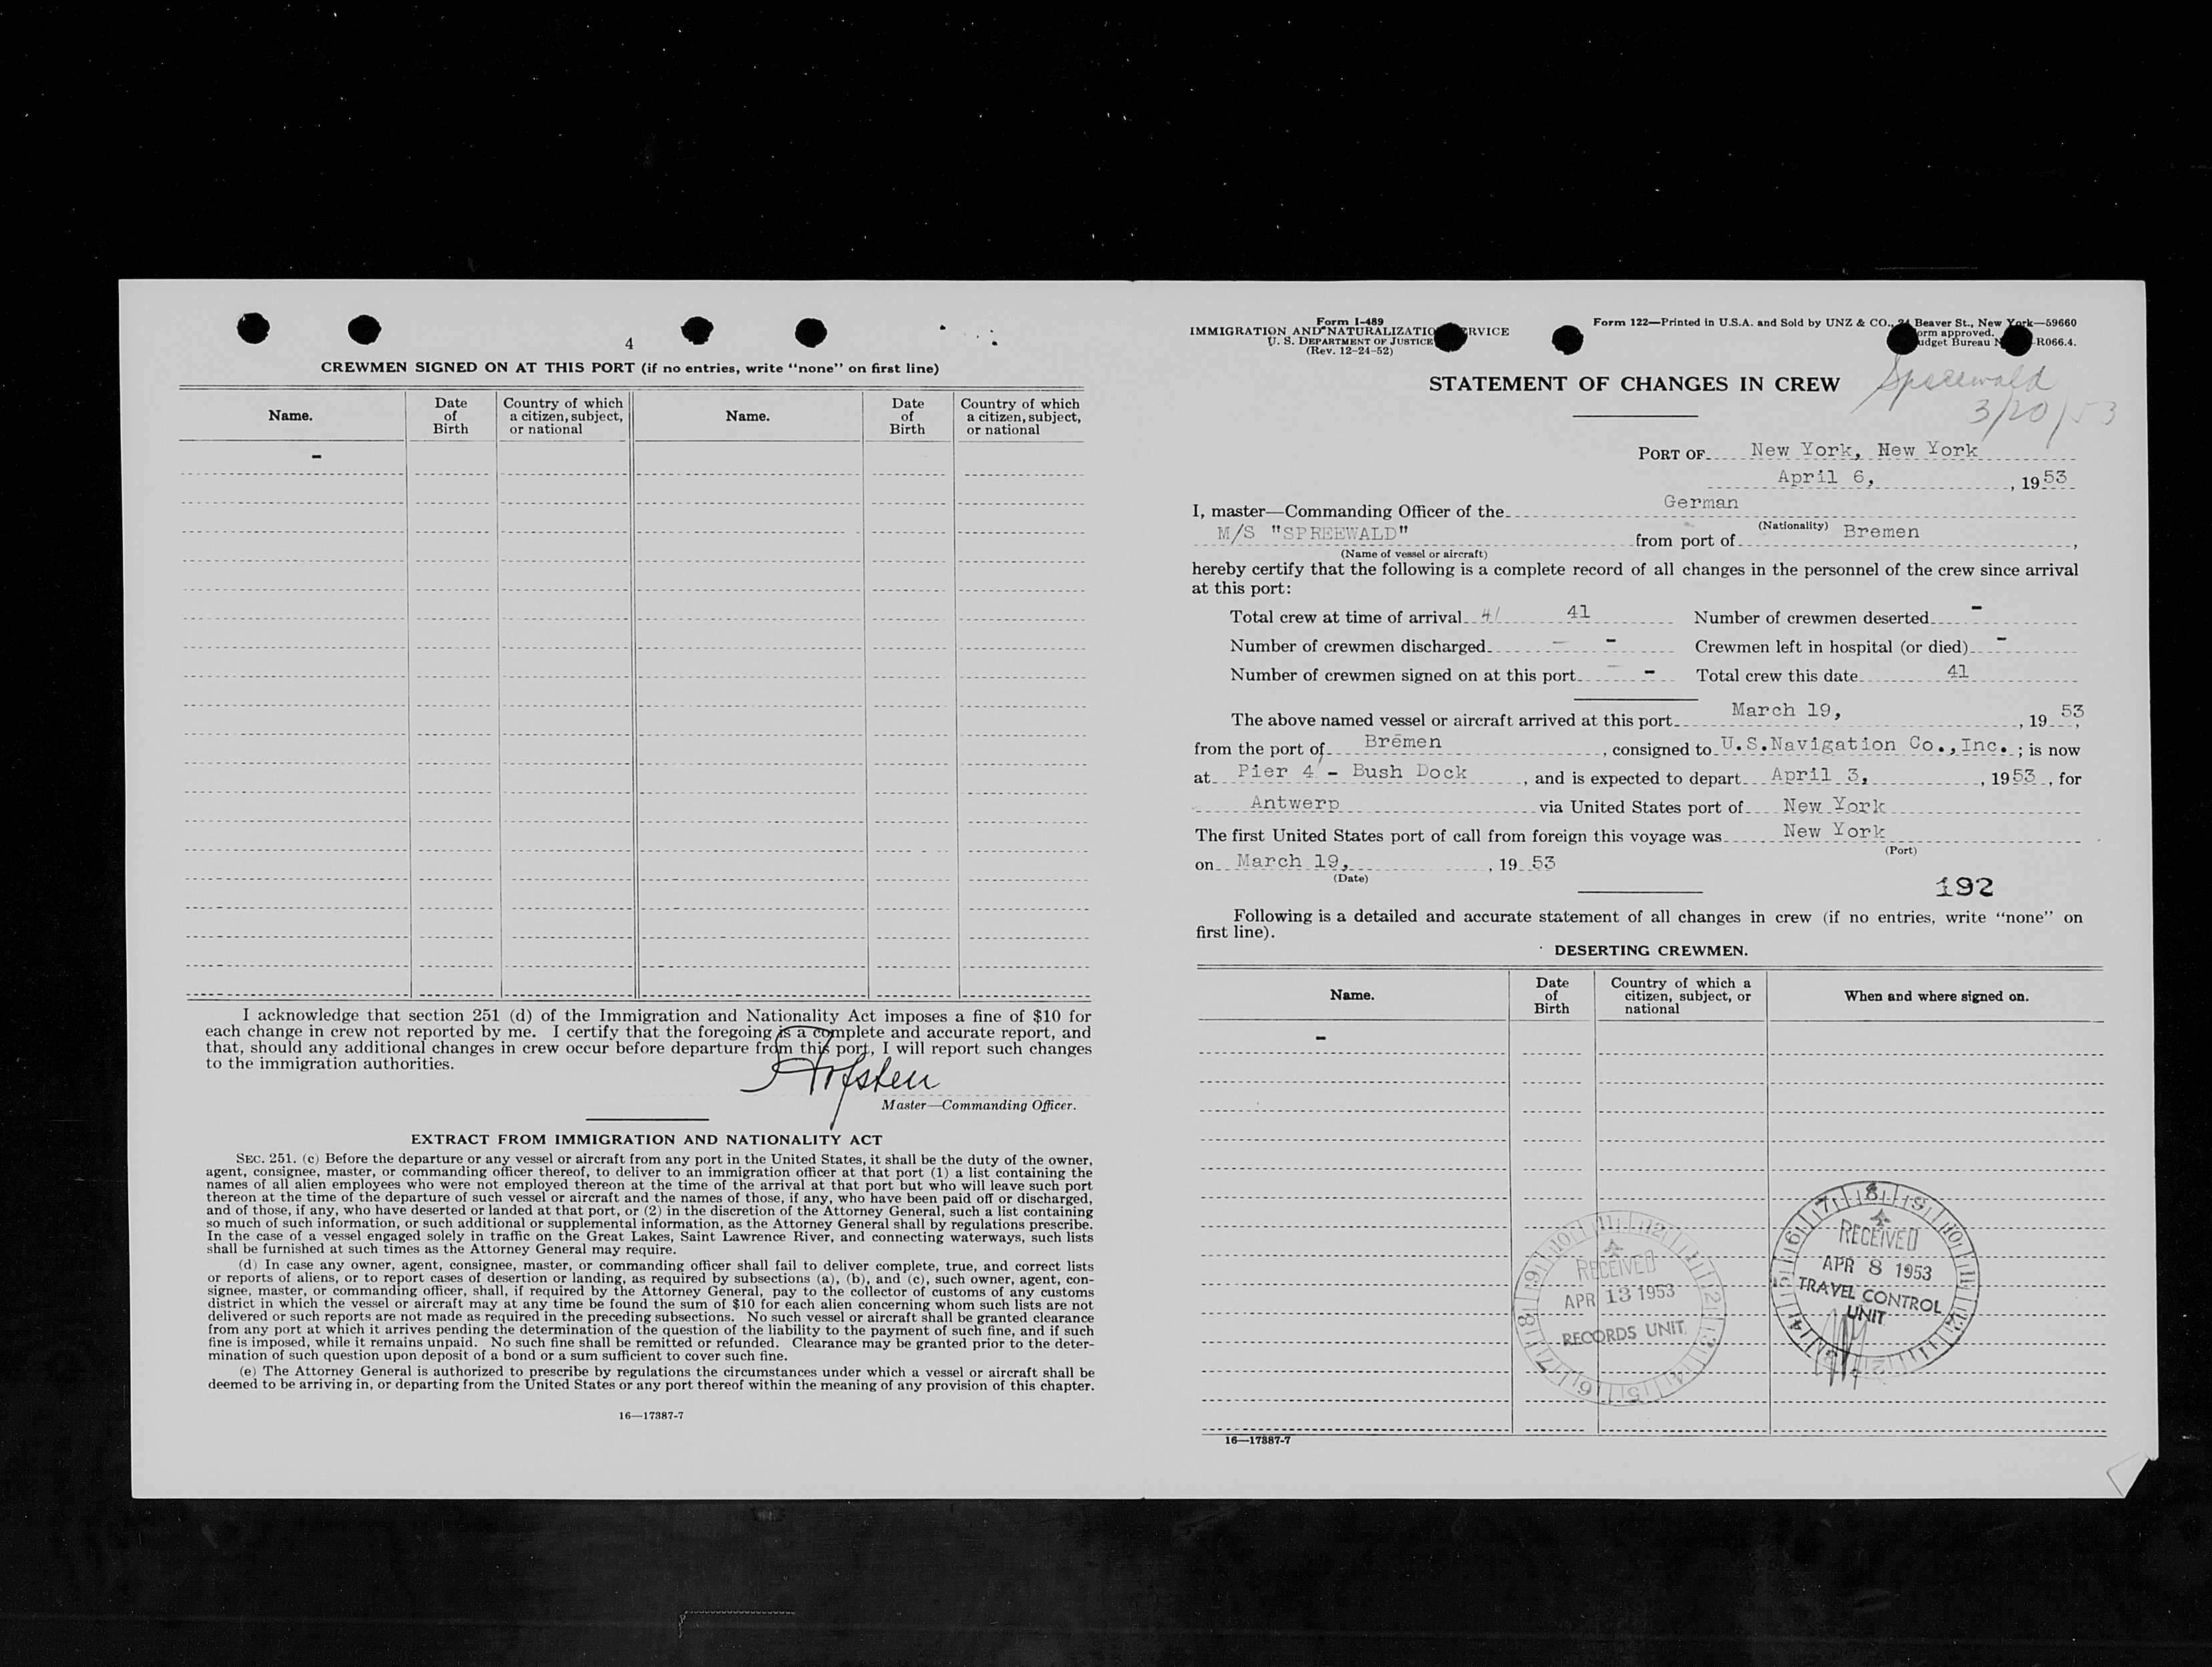 4
CREWMEN SIGNED ON AT THIS PORT (if no entries, write "none" on first line)
Name. Date of Birth Country of which a citizen, subject, or national Name. Date of Birth Country of which a citizen, subject, or national
-
I acknowledge that section 251 (d) of the Immigration and Nationality Act imposes a fine of $10 for
each change in crew not reported by me. I certify that the foregoing is a complete and accurate report, and
that, should any additional changes in crew occur before departure from this port, I will report such changes
to the immigration authorities.
Master—Commanding Officer.
EXTRACT FROM IMMIGRATION AND NATIONALITY ACT
SEC. 251. (c) Before the departure or any vessel or aircraft from any port in the United States, it shall be the duty of the owner,
agent, consignee, master, or commanding officer thereof, to deliver to an immigration officer at that port (1) a list containing the
names of all alien employees who were not employed thereon at the time of the arrival at that port but who will leave such port
thereon at the time of the departure of such vessel or aircraft and the names of those, if any, who have been paid off or discharged,
and of those, if any, who have deserted or landed at that port, or (2) in the discretion of the Attorney General, such a list containing
so much of such information, or such additional or supplemental information, as the Attorney General shall by regulations prescribe.
In the case of a vessel engaged solely in traffic on the Great Lakes, Saint Lawrence River, and connecting waterways, such lists
shall be furnished at such times as the Attorney General may require.
(d) In case any owner, agent, consignee, master, or commanding officer shall fail to deliver complete, true, and correct lists
or reports of aliens, or to report cases of desertion or landing, as required by subsections (a), (b), and (c), such owner, agent, con-
signee, master, or commanding officer, shall, if required by the Attorney General, pay to the collector of customs of any customs
district in which the vessel or aircraft may at any time be found the sum of $10 for each alien concerning whom such lists are not
delivered or such reports are not made as required in the preceding subsections. No such vessel or aircraft shall be granted clearance
from any port at which it arrives pending the determination of the question of the liability to the payment of such fine, and if such
fine is imposed, while it remains unpaid. No such fine shall be remitted or refunded. Clearance may be granted prior to the deter-
mination of such question upon deposit of a bond or a sum sufficient to cover such fine.
(e) The Attorney General is authorized to prescribe by regulations the circumstances under which a vessel or aircraft shall be
deemed to be arriving in, or departing from the United States or any port thereof within the meaning of any provision of this chapter.
16—17387-7
Form I-489
IMMIGRATION AND NATURALIZATIO RVICE
U. S. DEPARTMENT OF JUSTICE
(Rev. 12-24-52)
Form 122—Printed in U.S.A. and Sold by UNZ & CO., Beaver St., New York—59660
orm approved.
udget Bureau N R066.4.
STATEMENT OF CHANGES IN CREW
Spreewald
3/20/53
PORT OF New York, New York
April 6, , 1953
I, master—Commanding Officer of the German
(Nationality)
M/S "SPREEWALD" from port of Bremen ,
(Name of vessel or aircraft)
hereby certify that the following is a complete record of all changes in the personnel of the crew since arrival
at this port:
Total crew at time of arrival 41 41 Number of crewmen deserted -
Number of crewmen discharged - - Crewmen left in hospital (or died) -
Number of crewmen signed on at this port - - Total crew this date 41
The above named vessel or aircraft arrived at this port March 19, , 19 53,
from the port of Bremen , consigned to U.S.Navigation Co.,Inc. ; is now
at Pier 4 - Bush Dock , and is expected to depart April 3, , 1953 , for
Antwerp via United States port of New York
The first United States port of call from foreign this voyage was New York
(Port)
on March 19, , 19 53
(Date)
192
Following is a detailed and accurate statement of all changes in crew (if no entries, write "none" on
first line).
DESERTING CREWMEN.
Name. Date of Birth Country of which a citizen, subject, or national When and where signed on.
-
RECEIVED
APR 13 1953
RECORDS UNIT
RECEIVED
APR 8 1953
TRAVEL CONTROL
UNIT
16—17387-7